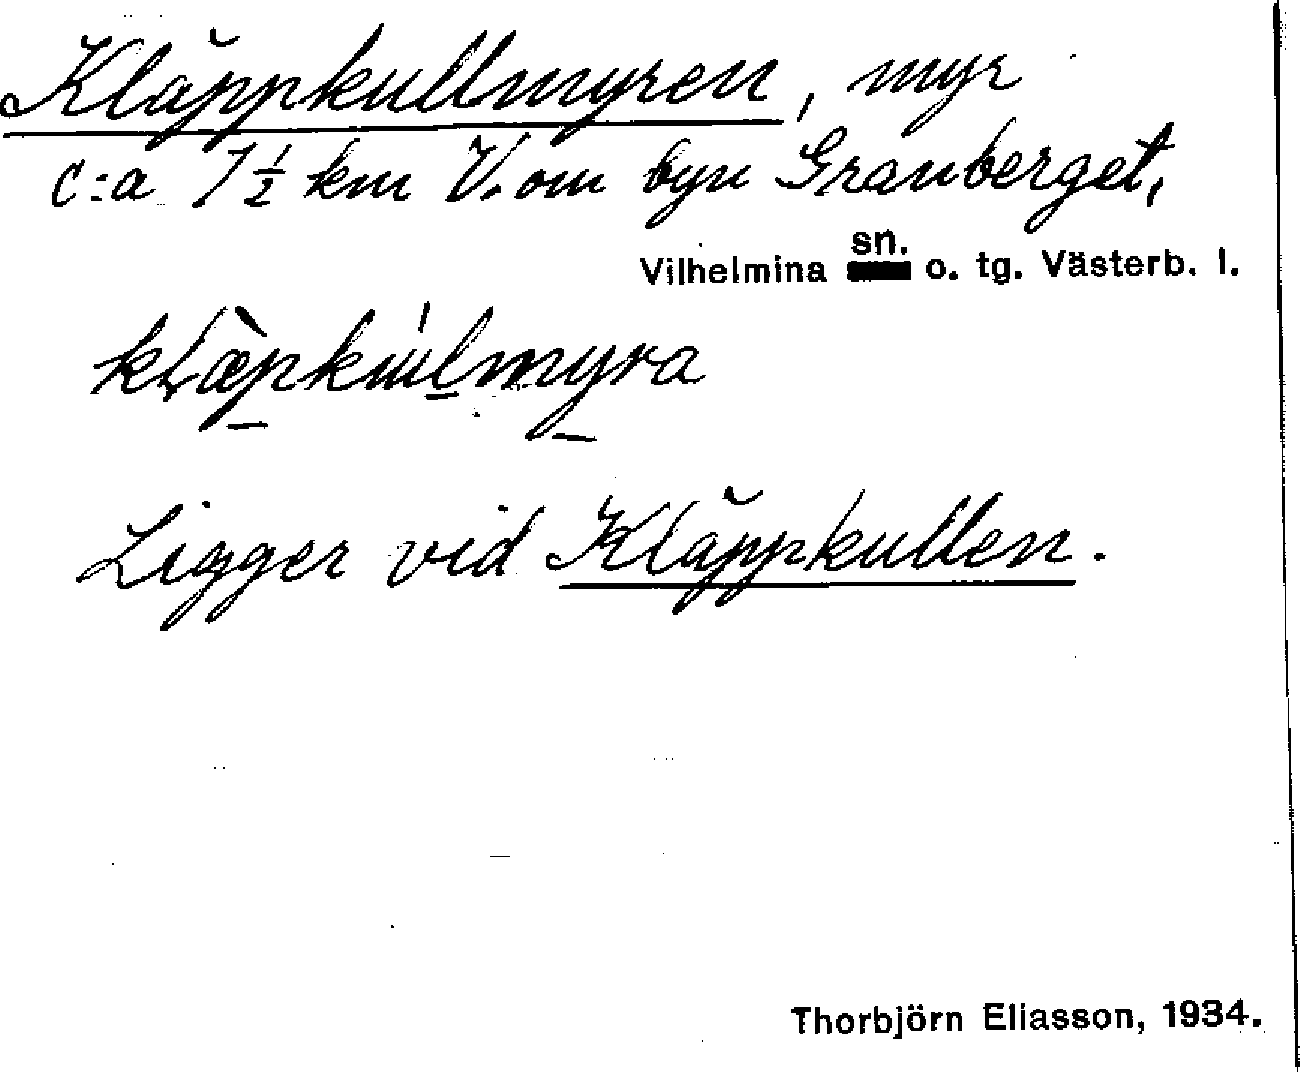 Kläppkullmyren, myr
c:a 1½ km V. om byn Granberget,
Vilhelmina sn. o. tg. Västerb. l.
kLæ̀pkúlmyra
Ligger vid Kläppkullen.
Thorbjörn Eliasson, 1934.